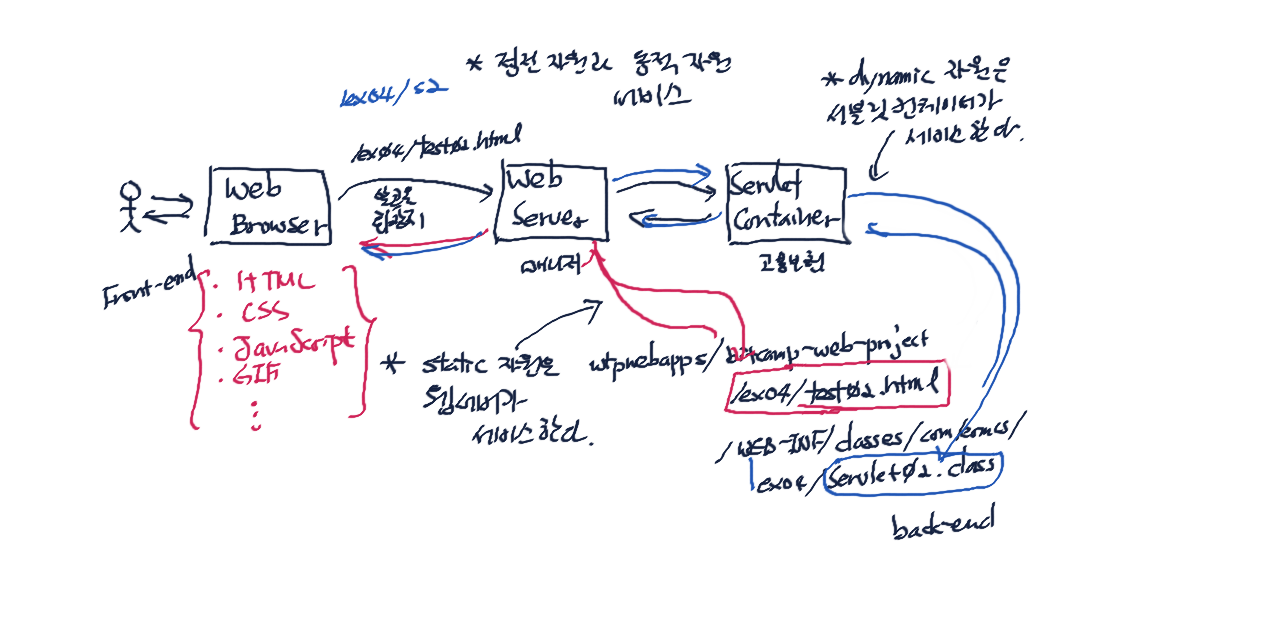 * 정적 자원과 동적 자원
서비스
/ex04/s2
* dynamic 자원은
서블릿 컨테이너가
서비스한다.
/ex04/test02.html
Web
Browser
Web
Server
Servlet
Container
매니저
고용보험
Front-end
· HTML
· CSS
· JavaScript
· GIF
* static 자원은
웹서버가
서비스한다.
wtpwebapps/bitcamp-web-project
/ex04/test02.html
/WEB-INF/classes/com/eomcs/
ex04/Servlet02.class
back-end